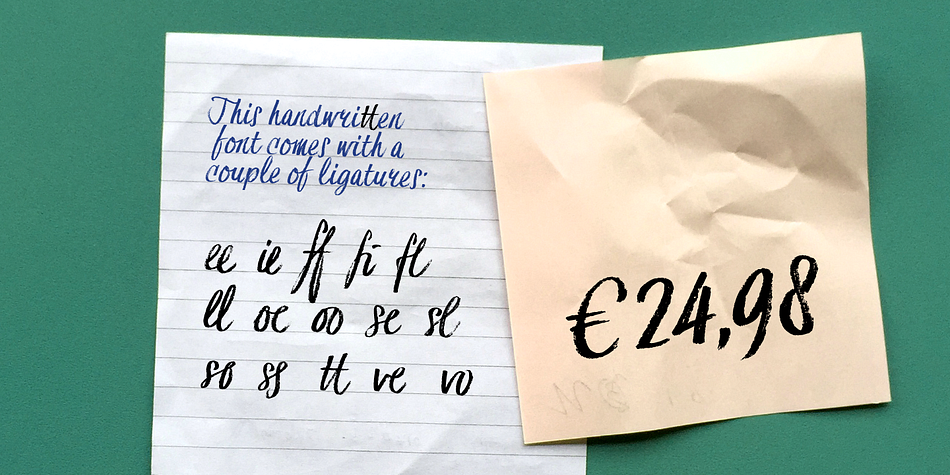 This handwritten
font comes with a
couple of ligatures:
ee ie ff fi fl
ll oe oo se sl
so ss tt ve vo
€24,98